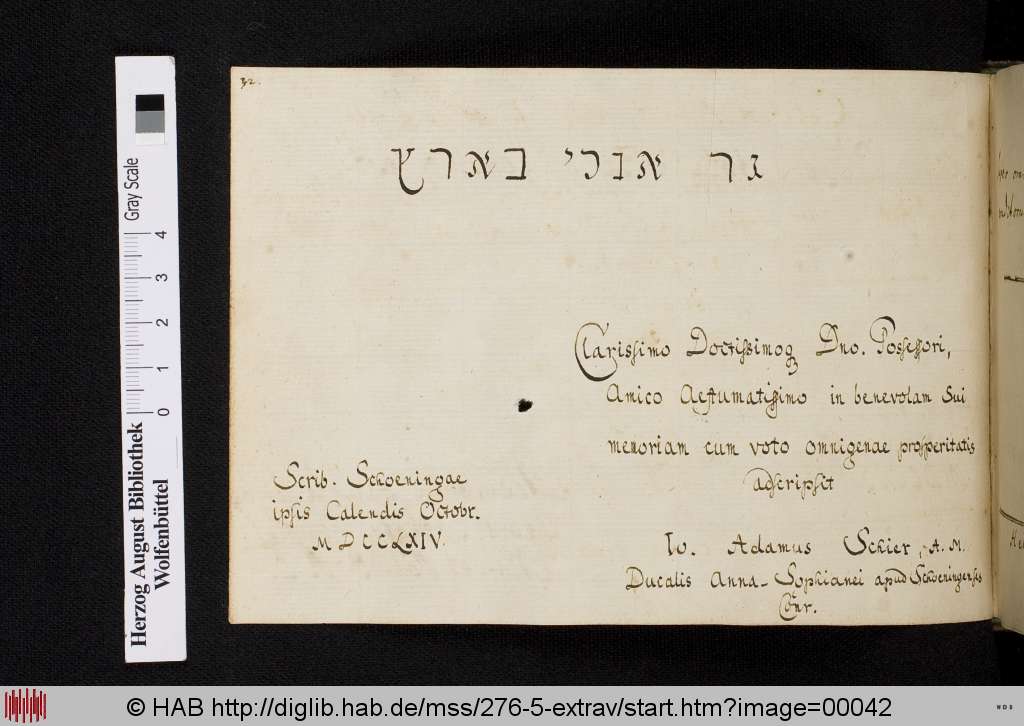 32.
גר אנכי בארץ
Clarissimo Doctissimoq Dno. Possessori,
Amico Aestumatissimo in benevolam Sui
memoriam cum voto omnigenae prosperitatis
adscripsit
Scrib. Schoeningae
ipsis Calendis Octobr.
MDCCLXIV.
Io. Adamus Schier, A. M.
Ducalis Anna-Sophianei apud Schoeningenses
Conr.
Herzog August Bibliothek
Wolfenbüttel
Gray Scale
0 1 2 3 4
© HAB http://diglib.hab.de/mss/276-5-extrav/start.htm?image=00042